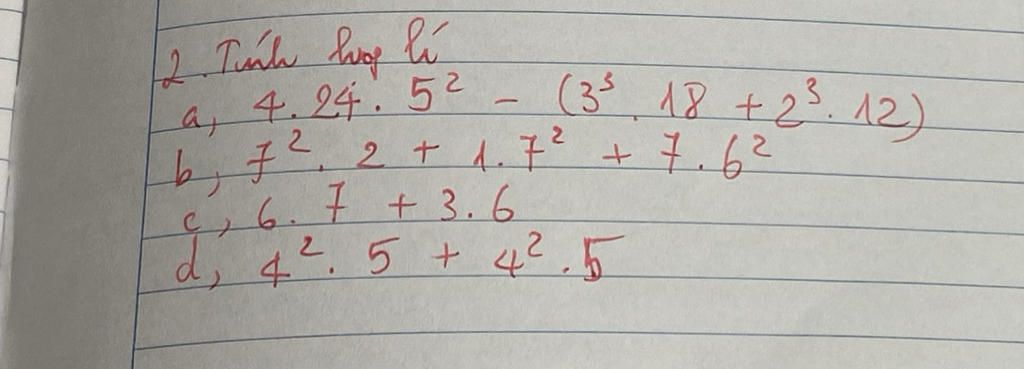 2. Tính hợp lí
a, 4.24.5² - (3³.18 + 2³.12)
b, 7².2 + 1.7² + 7.6²
c, 6.7 + 3.6
d, 4².5 + 4².5